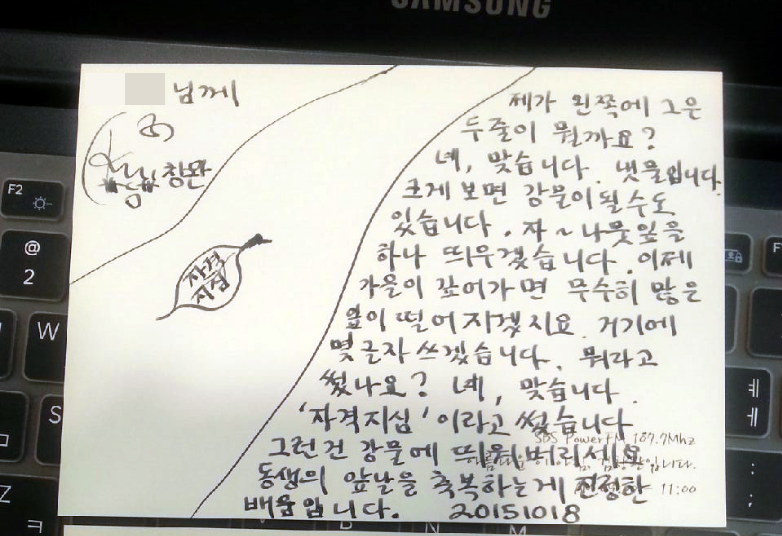 SAMSUNG
님께
창완
제가 왼쪽에 그은
두줄이 뭘까요?
녜, 맞습니다. 냇물입니다.
크게 보면 강물이 될수도
있습니다. 자~나뭇잎을
하나 띄우겠습니다. 이제
가을이 깊어가면 무수히 많은
잎이 떨어지겠지요. 거기에
몇글자 쓰겠습니다. 뭐라고
썼나요? 녜, 맞습니다.
'자격지심'이라고 썼습니다
그런건 강물에 띄워버리세요
동생의 앞날을 축복하는게 진정한
배움입니다. 20151018
자격
지심
SBS Power FM 107.7Mhz
입니다.
11:00
F2
@
2
W
S
Z
ㅋ
N
M
ㅔ
ㅖ
:
;